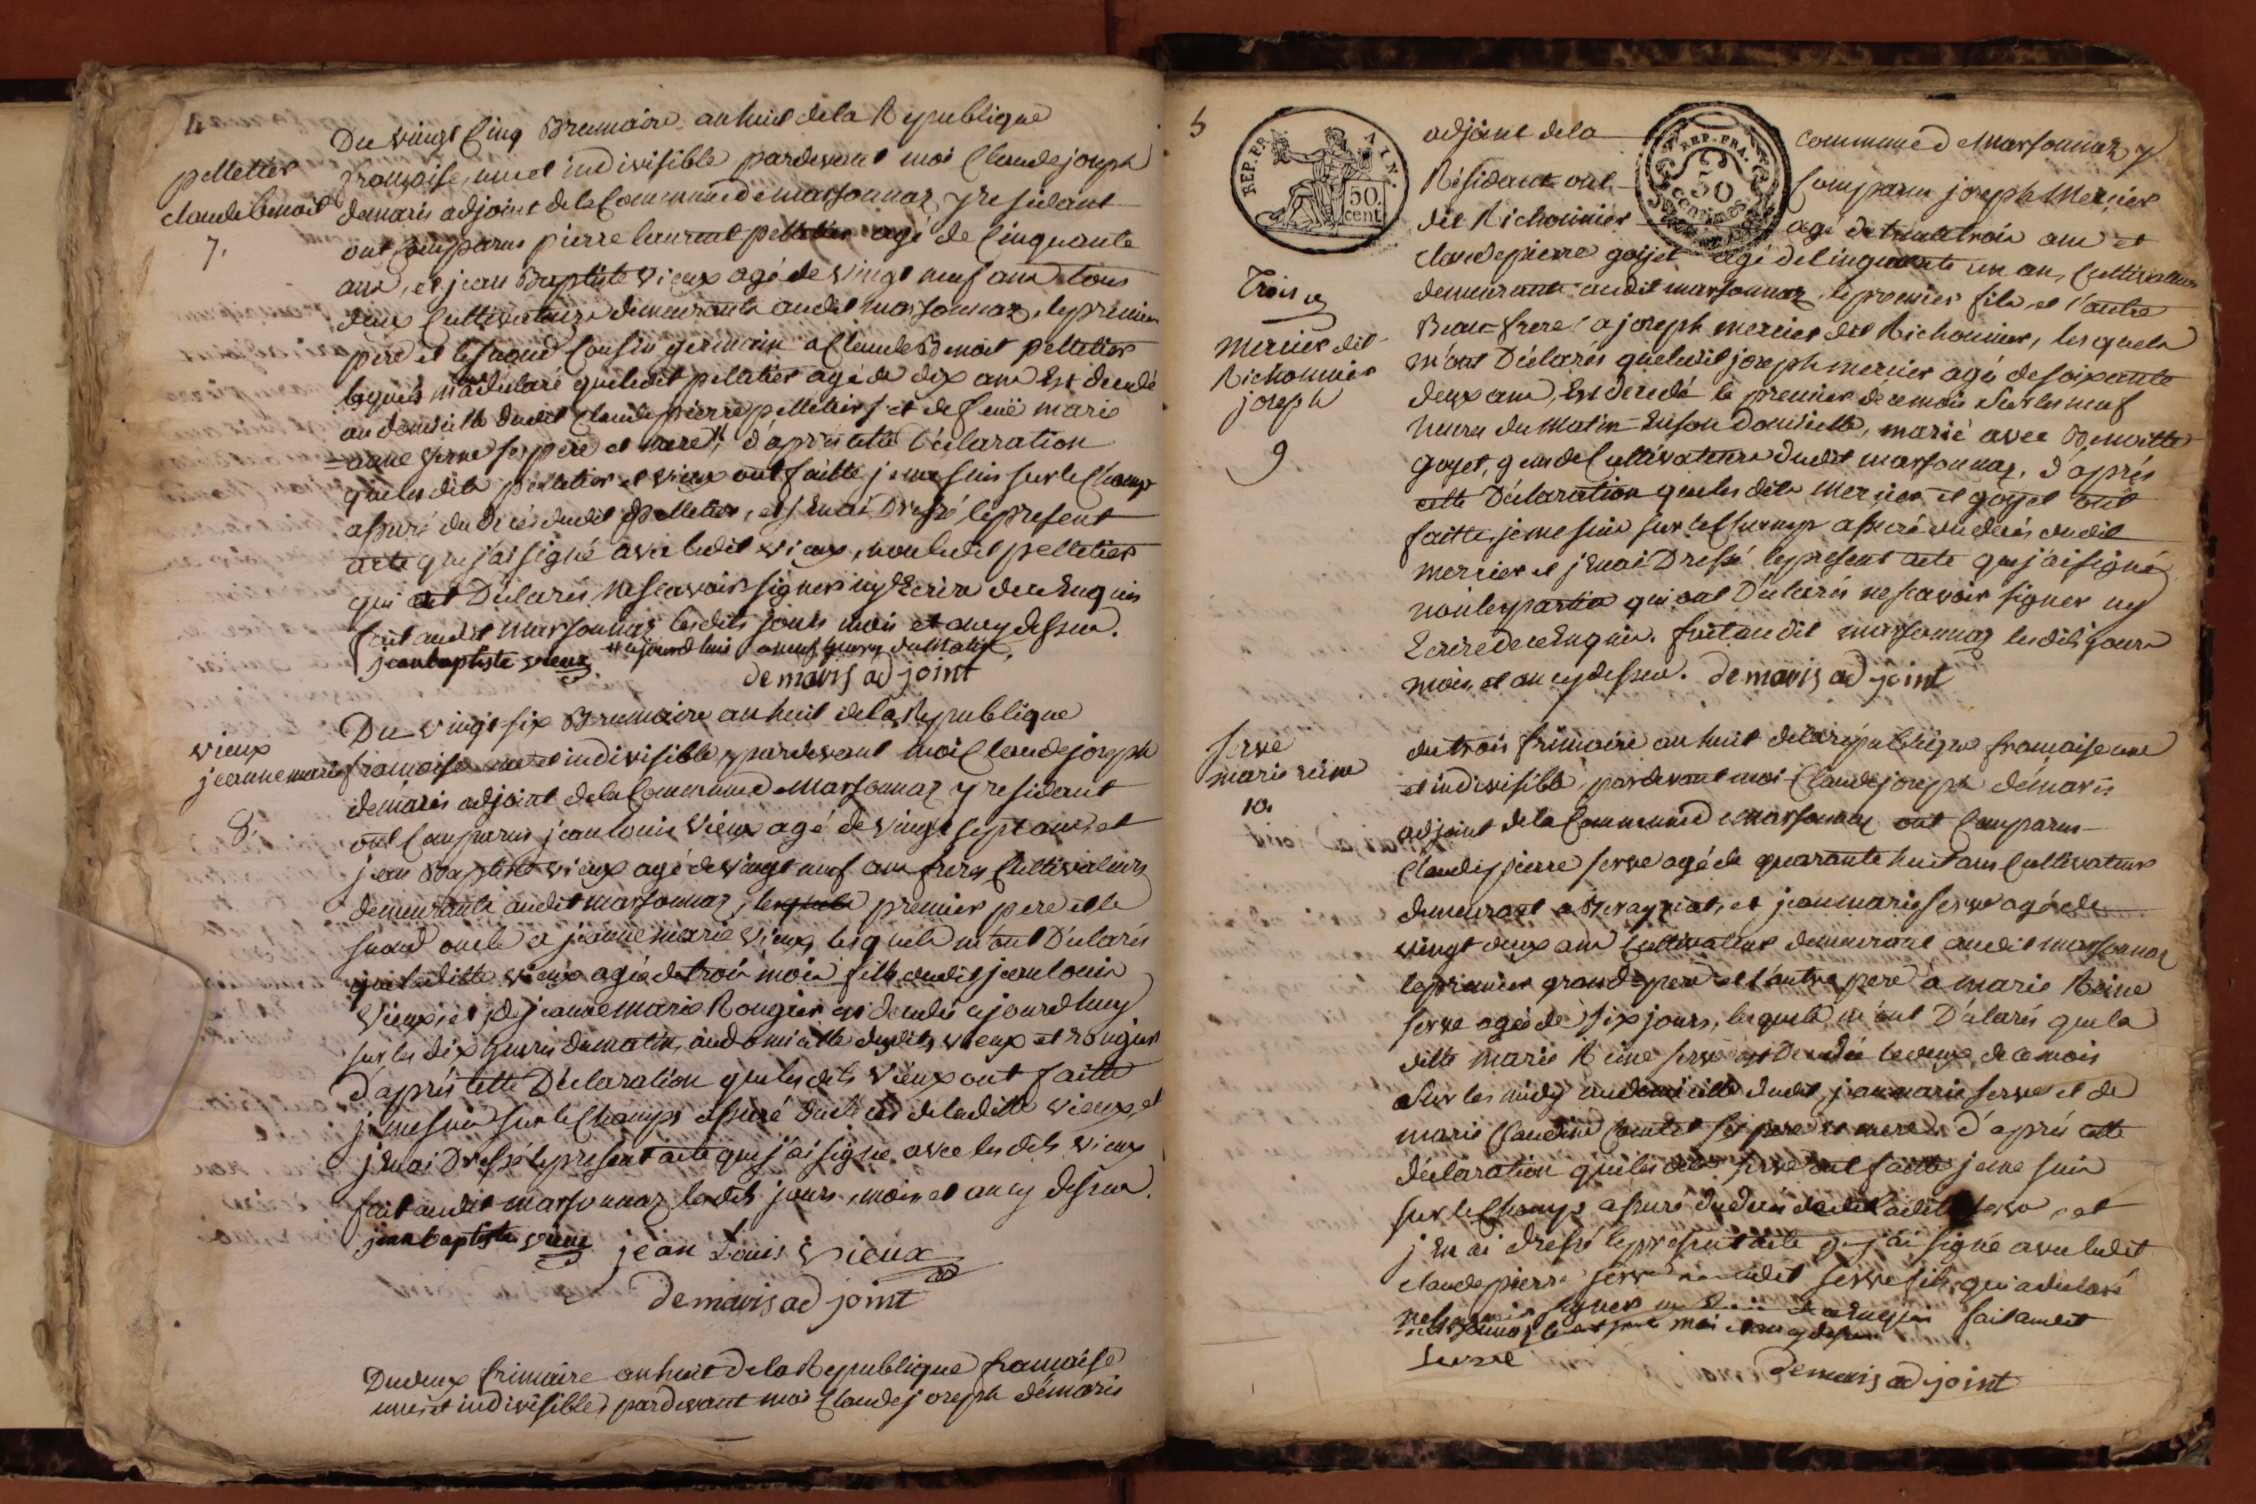 4
pelletier
claude benoit
7.
Du vingt cinq Brumaire an huit de la Republique
françoise, une et indivisible pardevant moi Claude joseph
demaris adjoint de la Commune de marsonnaz y residant
ont comparus pierre laurent pelletier agé de Cinquante
ans, et jean Baptiste vieux agé de vingt neuf ans tous
deux Cultivateurs demeurants audit marsonnaz, le premier
pere et le second Cousin germain a Claude Benoit pelletier
lesquels m'a déclaré que ledit pelletier agé de dix ans Est decedé
au domicille dudit Claude pierre pelletier et de feuë marie
anne serve ses pere et mere, # d'après cette Déclaration
que lesdits pelletier et vieux ont faitte je me suis sur le Champ
assuré du decès dudit pelletier, et j'en ai Dressé le present
acte que j'ai signé avec ledit vieux, non ledit pelletier
qui a Déclarés ne scavoir signer ny Ecrire de ce Enquis
fait audit marsonnaz lesdits jours mois et an cy dessus.
jean baptiste vieux # ajourd huis a neuf heures du Matin.
demaris adjoint
vieux
jeanne marie
8.
Du vingt six Brumaire an huit de la Republique
francaise une et indivisible, pardevant moi Claude joseph
demaris adjoint de la Commune de Marsonnaz y residant
ont Comparus jean louis vieux agé de vingt sept ans, et
jean Baptiste vieux agé de vingt neuf ans freres Cultivateurs
demeurants audit marsonnaz, lesquels premier pere et le
second oncle a jeanne marie vieux, lesquels m'ont Déclarés
que laditte vieux agée de trois mois fille dudit jean louis
vieux, et de jeanne marie Rougier est decedée ajourd huy
sur les dix heures du matin, au domicille desdits vieux et rougier
d'après cette Déclaration que lesdits vieux ont faitte
je me suis sur le Champs assuré du decès de laditte vieux, et
j'en ai Dressé le present acte que j'ai signé avec lesdits vieux
fait audit marsonnaz lesdits jours, mois et an cy dessus.
jean baptiste vieux jean Louis Vieux
demaris adjoint
Du deux frimaire an huit de la Republique francaise
une et indivisible, pardevant moi Claude joseph démaris
5
REP. FRA. AIN.
50. cent.
REP. FRA.
50
Centimes
Trois
mercier dit
Richonnier
joseph
9
adjoint de la Commune de Marsonnaz y
Résidant ont Comparus joseph Mercier
dit Richonnier agé de trente trois ans et
claude pierre goyet agé de cinquante un an, Cultivateurs
demeurants audit marsonnaz, le premier fils, et l'autre
Beau-frere a joseph mercier dit Richonnier, lesquels
m'ont Déclarés que ledit joseph mercier agé de soixante
deux ans, Est decedé le premier de ce mois sur les neuf
heures du matin En son domicille, marié avec Benoitte
Goyet, Cultivateurs dudit marsonnaz, d'après
cette Déclaration que lesdits Mercier et goyet ont
faitte, je me suis sur le Champ assuré du decès dudit
mercier et j'en ai Dressé le present acte que j'ai signé
non les parties qui ont Déclarés ne scavoir signer ny
Ecrire de ce Enquis. fait audit marsonnaz lesdits jours
mois, et an cy dessus. demaris adjoint
serve
marie reine
10.
du trois frimaire an huit de la république francaise une
et indivisible, pardevant moi Claude joseph démaris
adjoint de la Commune de Marsonnaz ont Comparus
Claude pierre serve agé de quarante huit ans Cultivateur
demeurant a Beragziat, et jean marie serve agé de
vingt deux ans Cultivateur demeurant audit marsonnaz
le premier grand-pere et l'autre pere a marie Reine
serve agée de six jours, lesquels m'ont Déclarés que la
ditte marie Reine serve est Decedée le deux de ce mois
sur les midy au domicille dudit jean marie serve et de
marie Claudine ses pere et mere. d'après cette
déclaration que lesdits serve ont faitte je me suis
sur le Champs assuré du decès de laditte serve, et
j'en ai dressé le present acte que j'ai signé avec ledit
claude pierre serve non ledit serve fils, qui a declaré
ne scavoir signer de ce Enquis fait audit
marsonnaz les jours mois et an cy dessus
Serve
demaris adjoint